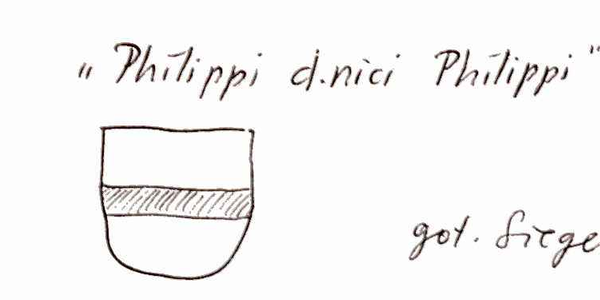 „Philippi d.nici Philippi"
got. Siege